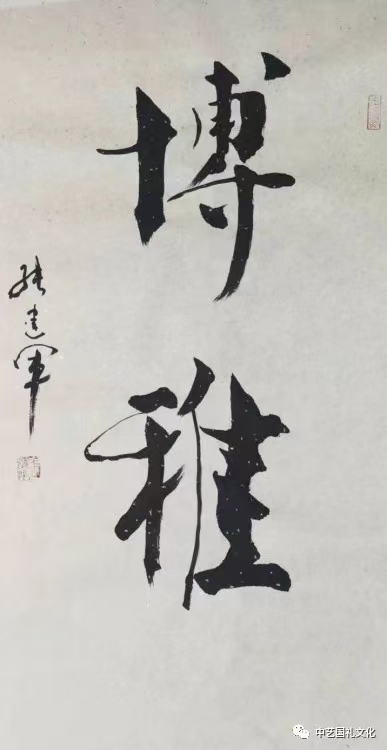 博雅
張建軍
中艺国礼文化